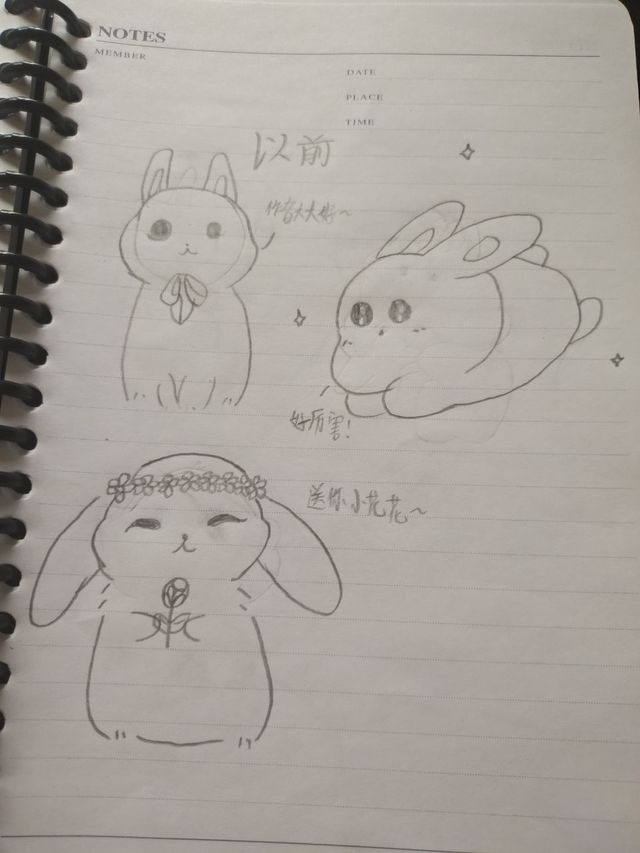 NOTES
MEMBER
DATE
PLACE
TIME
以前
作者大大好~
好厉害!
送你小花花~